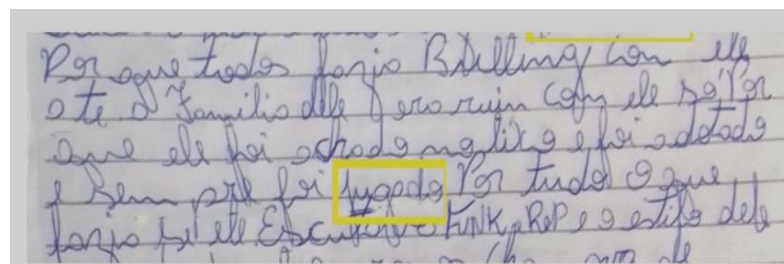 Por que todos fazia Bulling con ele
ate a Familia dele era ruin com ele só Por
que ele foi achado no lixo e foi adotado
e Sem pre foi jugado Por tudo o que
fazia se ele Escutava FUNK, RAP e o estilo dele